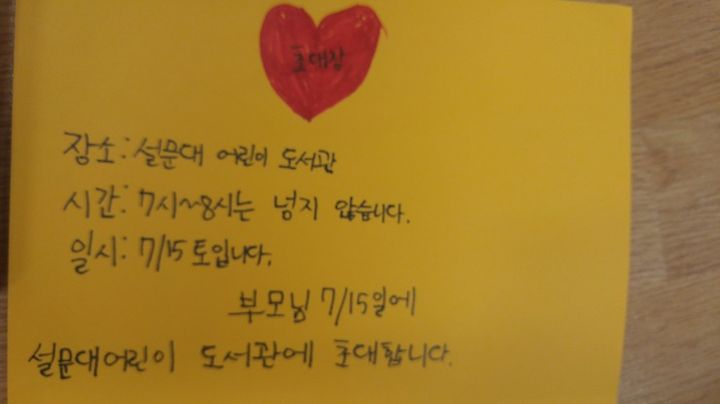 초대장
장소: 설문대 어린이 도서관
시간: 7시~8시는 넘지 않습니다.
일시: 7/15 토입니다.
부모님 7/15일에
설문대어린이 도서관에 초대합니다.